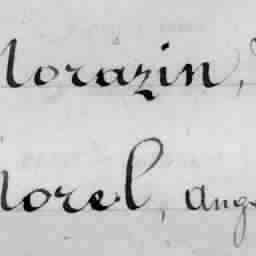 Morazin,
Morel, Aug